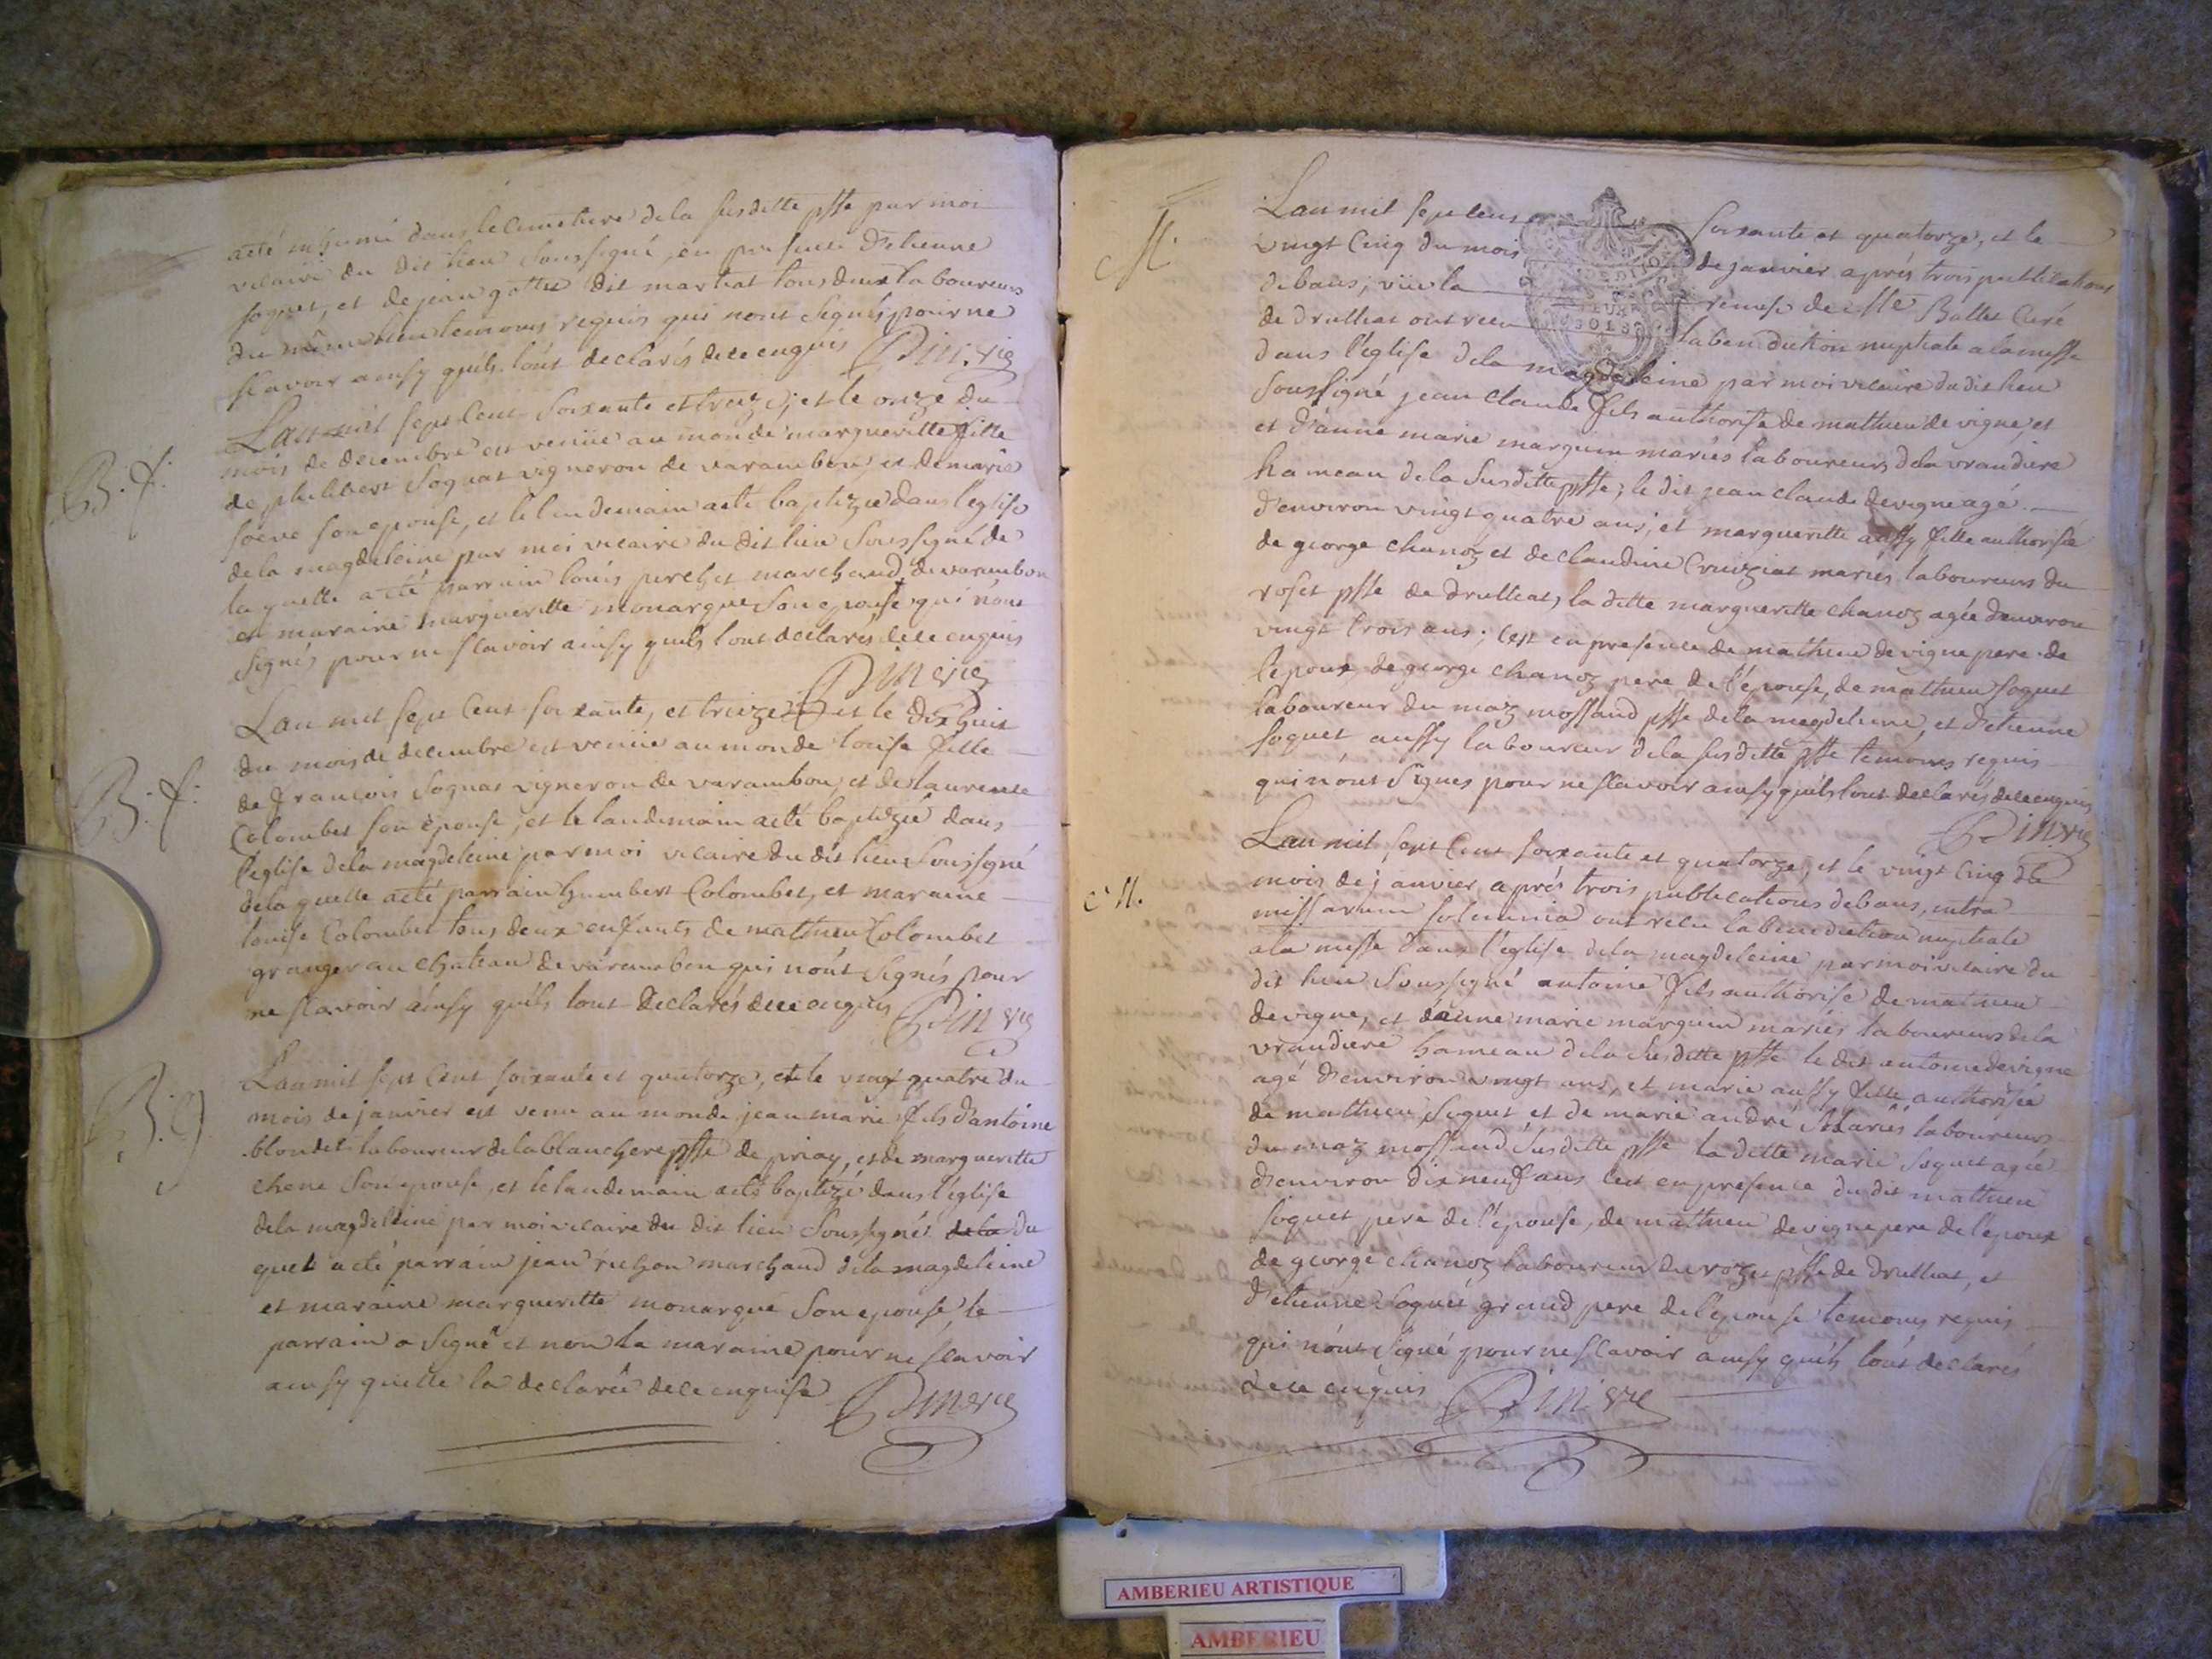 a été inhumé dans le cimetiere de la susditte psse par moi
vicaire du dit lieu soussigné, en presence d'etienne
soquet, et de jean gottes dit martiat tous deux laboureurs
du même lieu temoins requis qui n'ont signés pour ne
scavoir ainsy qu'ils l'ont declarés de ce enquis Pin vic
B. f.
L'an mil sept cent soixante et treize, et le onze du
mois de decembre est venüe au monde margueritte fille
de philibert soquat vigneron de varambon et de marie
seeve son epouse, et le lendemain a été baptizée dans l'eglise
de la magdeleine par moi vicaire du dit lieu soussigné de
laquelle a été parrain louis perchet marchand de varambon
et maraine margueritte monarque son epouse qui n'ont
signés pour ne scavoir ainsy qu'ils l'ont declarés de ce enquis
Pin vic
B. f.
L'an mil sept cent soixante, et treize et le dix huit
du mois de decembre est venüe au monde louise fille
de francois soquat vigneron de varambon, et de laurence
Colombet son epouse, et le landemain a été baptizée dans
l'eglise de la magdeleine par moi vicaire du dit lieu soussigné
de laquelle a été parrain humbert Colombet, et maraine
louise Colombet tous deux enfants de mathieu Colombet
granger au chateau de varambon qui n'ont signés pour
ne scavoir ainsy qu'ils l'ont declarés de ce enquis Pin vic
B. g.
L'an mil sept cent soixante et quatorze, et le vingt quatre du
mois de janvier est venu au monde jean marie fils d'antoine
blondet laboureur de la blanchere psse de priay, et de margueritte
chene son epouse, et le landemain a été baptizé dans l'église
de la magdeleine par moi vicaire du dit lieu soussigné de la du
quel a été parrain jean richon marchand de la magdeleine
et maraine margueritte monarque son epouse, le
parrain a signé et non la maraine pour ne scavoir
ainsy qu'elle la declarée de ce enquise Pin vic
M.
L'an mil sept cens soixante et quatorze, et le
vingt cinq du mois de janvier aprés trois publications
de bans, vüe la remise de Mre Ballet Curé
de druillat ont recu la benediction nuptiale a la messe
dans l'église de la magdeleine par moi vicaire du dit lieu
soussigné jean claude fils authorisé de mathieu de vigne, et
et d'anne marie marguin mariés laboureurs de la vrandiere
hameau de la susditte psse; le dit jean claude devigne agé
d'environ vingt quatre ans, et margueritte aussy fille authorisée
de george chanoz et de claudine Cruiziat mariés laboureurs du
roset psse de druillat, la ditte margueritte chanoz agée d'environ
vingt trois ans; c'est en presence de mathieu devigne pere de
l'epoux de george chanoz pere de l'épouse, de mathieu soquet
laboureur du maz mossand psse de la magdeleine, et d'etienne
soquet aussy laboureur de la susditte psse temoins requis
qui n'ont signes pour ne scavoir ainsy qu'ils l'ont declarés de ce enquis
Pin vic
M.
L'an mil sept cent soixante et quatorze, et le vingt cinq du
mois de janvier aprés trois publications de bans, intra
missarum solemnia ont recu la benediction nuptiale
a la messe dans l'église de la magdeleine par moi vicaire du
dit lieu soussigné antoine fils authorisé de mathieu
devigne, et d'anne marie marguin mariés laboureurs de la
vrandiere hameau de la susditte psse le dit antoine devigne
agé d'environ vingt ans, et marie aussy fille authorisée
de mathieu soquet et de marie andré mariés laboureurs
du maz mossand susditte psse la ditte marie soquet agée
d'environ dix neuf ans c'est en presence du dit mathieu
soquet pere de l'epouse, de mathieu devigne pere de l'epoux
de george chanoz laboureur du rozet psse de druillat, et
d'etienne soquet grand pere de l'epouse temoins requis
qui n'ont signé pour ne scavoir ainsy qu'ils l'ont declarés
de ce enquis Pin vic
AMBERIEU ARTISTIQUE
AMBERIEU